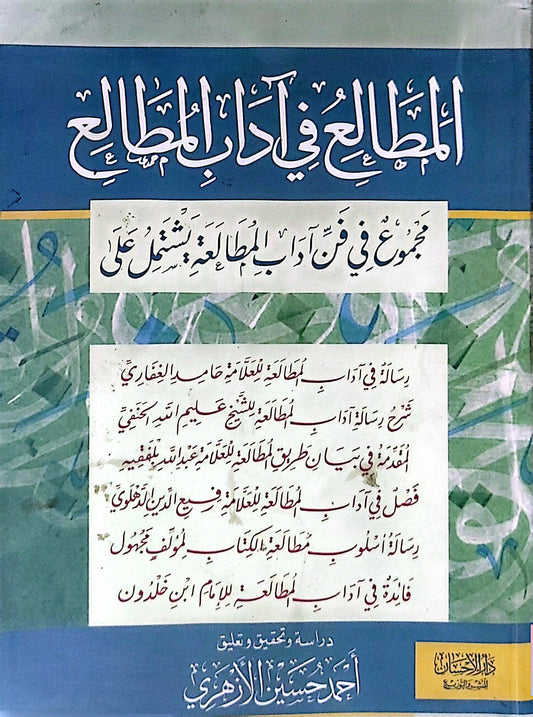 المَطَالِعُ فِي آدَابِ المُطَالِعِ
مَجْمُوعٌ فِي فَنِّ آدَابِ المُطَالَعَةِ يَشْتَمِلُ عَلَى
رِسَالَةٌ فِي آدَابِ المُطَالَعَةِ لِلْعَلَّامَةِ حَامِدِ الغِفَارِيِّ
شَرْحُ رِسَالَةِ آدَابِ المُطَالَعَةِ لِلشَّيْخِ عَلِيمِ اللهِ الحَنَفِيِّ
المُقَدِّمَةُ فِي بَيَانِ طَرِيقِ المُطَالَعَةِ لِلْعَلَّامَةِ عَبْدِ اللهِ بَلْفَقِيه
فَصْلٌ فِي آدَابِ المُطَالَعَةِ لِلْعَلَّامَةِ رَفِيعِ الدِّينِ الدَّهْلَوِيِّ
رِسَالَةُ أُسْلُوبِ مُطَالَعَةِ الكِتَابِ لِمُؤَلِّفٍ مَجْهُولٍ
فَائِدَةٌ فِي آدَابِ المُطَالَعَةِ لِلإِمَامِ ابْنِ خَلْدُون
دراسة وتحقيق وتعليق
أَحْمَد حُسَيْن الأَزْهَرِي
دَارُ الإِحْسَان
للنشر والتوزيع